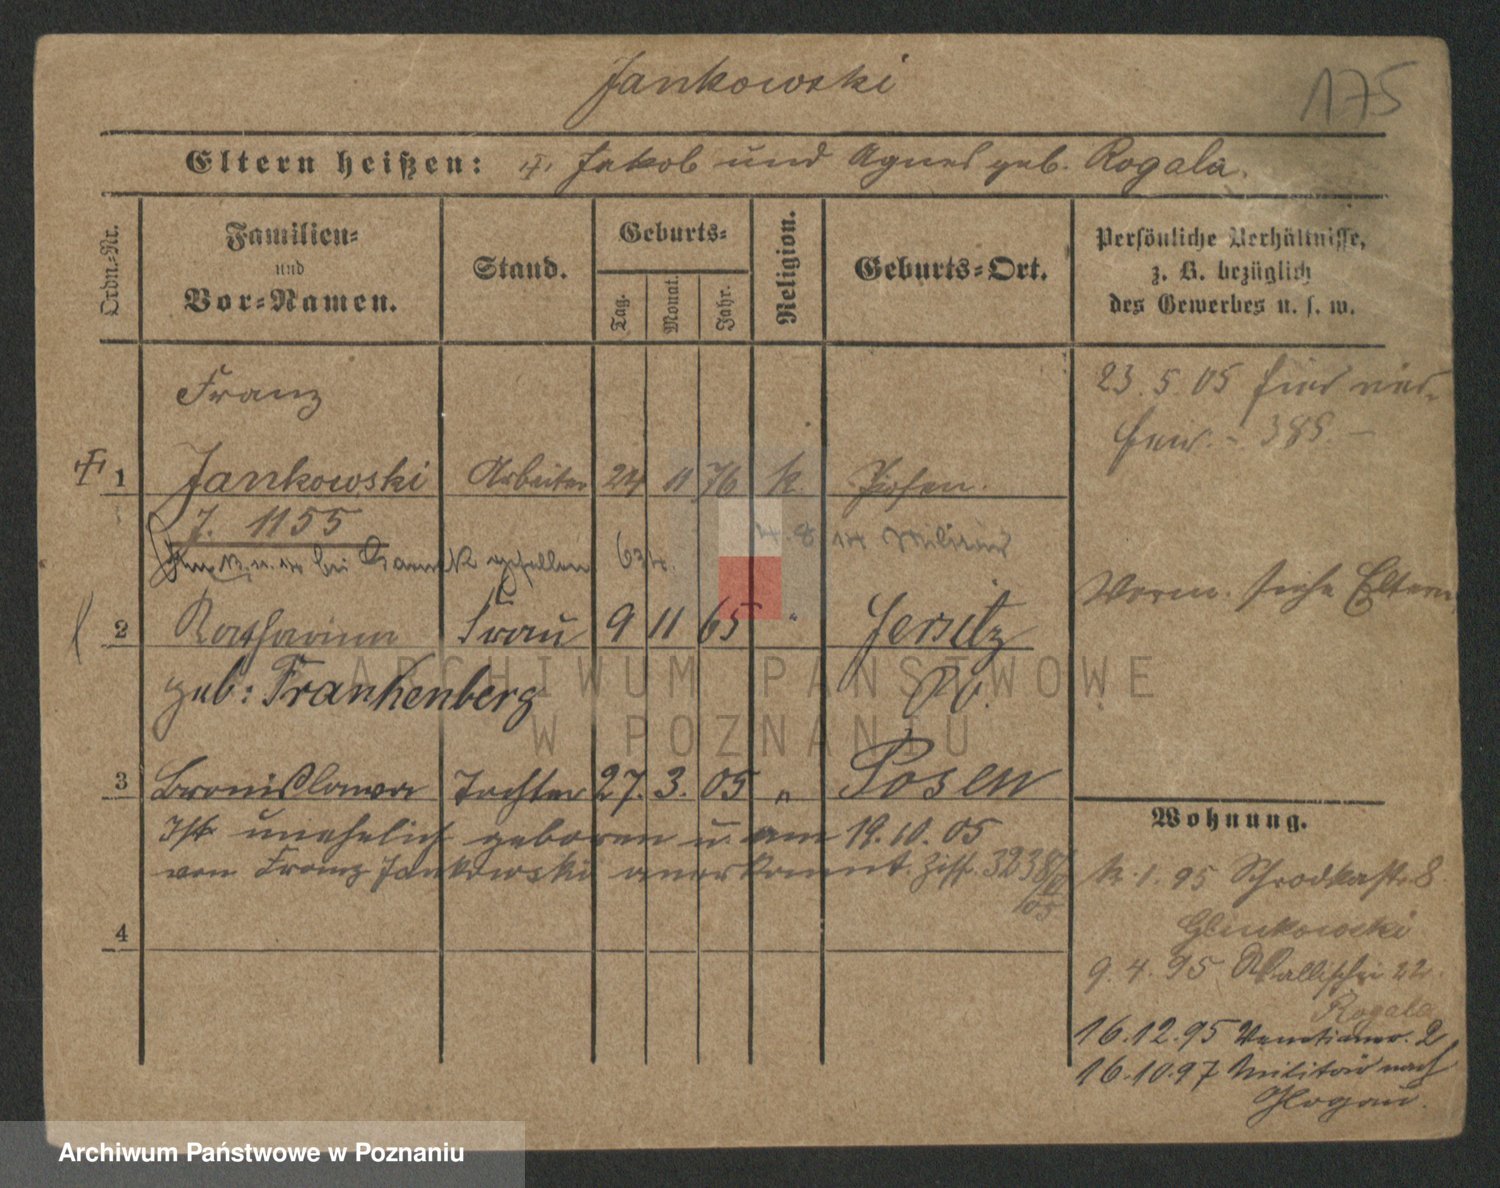 Jankowski
175
Eltern heißen: Jakob und Agnes geb. Rogala.
Ordn.-Nr.
Familien-
und
Vor-Namen.
Stand.
Geburts-
Tag.
Monat.
Jahr.
Religion.
Geburts-Ort.
Persönliche Verhältnisse,
z. B. bezüglich
des Gewerbes u. s. w.
Franz
23. 5. 05
385.
1 Jankowski Arbeiter 24 11 76 k. Posen.
J. 1155
4. 8. 14 Militär
bei gefallen
Verm. siehe Eltern
2 Katharina Frau 9 11 65 " Jersitz
geb: Frankenberg
ARCHIWUM PAŃSTWOWE
W POZNANIU
3 Bronislawa Tochter 27. 3. 05 " Posen
Ist unehelich geboren u. am 19. 10. 05
von Franz Jankowski anerkannt.
4
Wohnung.
1. 95 Schrodkastr. 8.
9. 4. 95 Wallischei 22
Rogala
16. 12. 95 Venetianer. 2
16. 10. 97 Militär nach
Glogau.
Archiwum Państwowe w Poznaniu